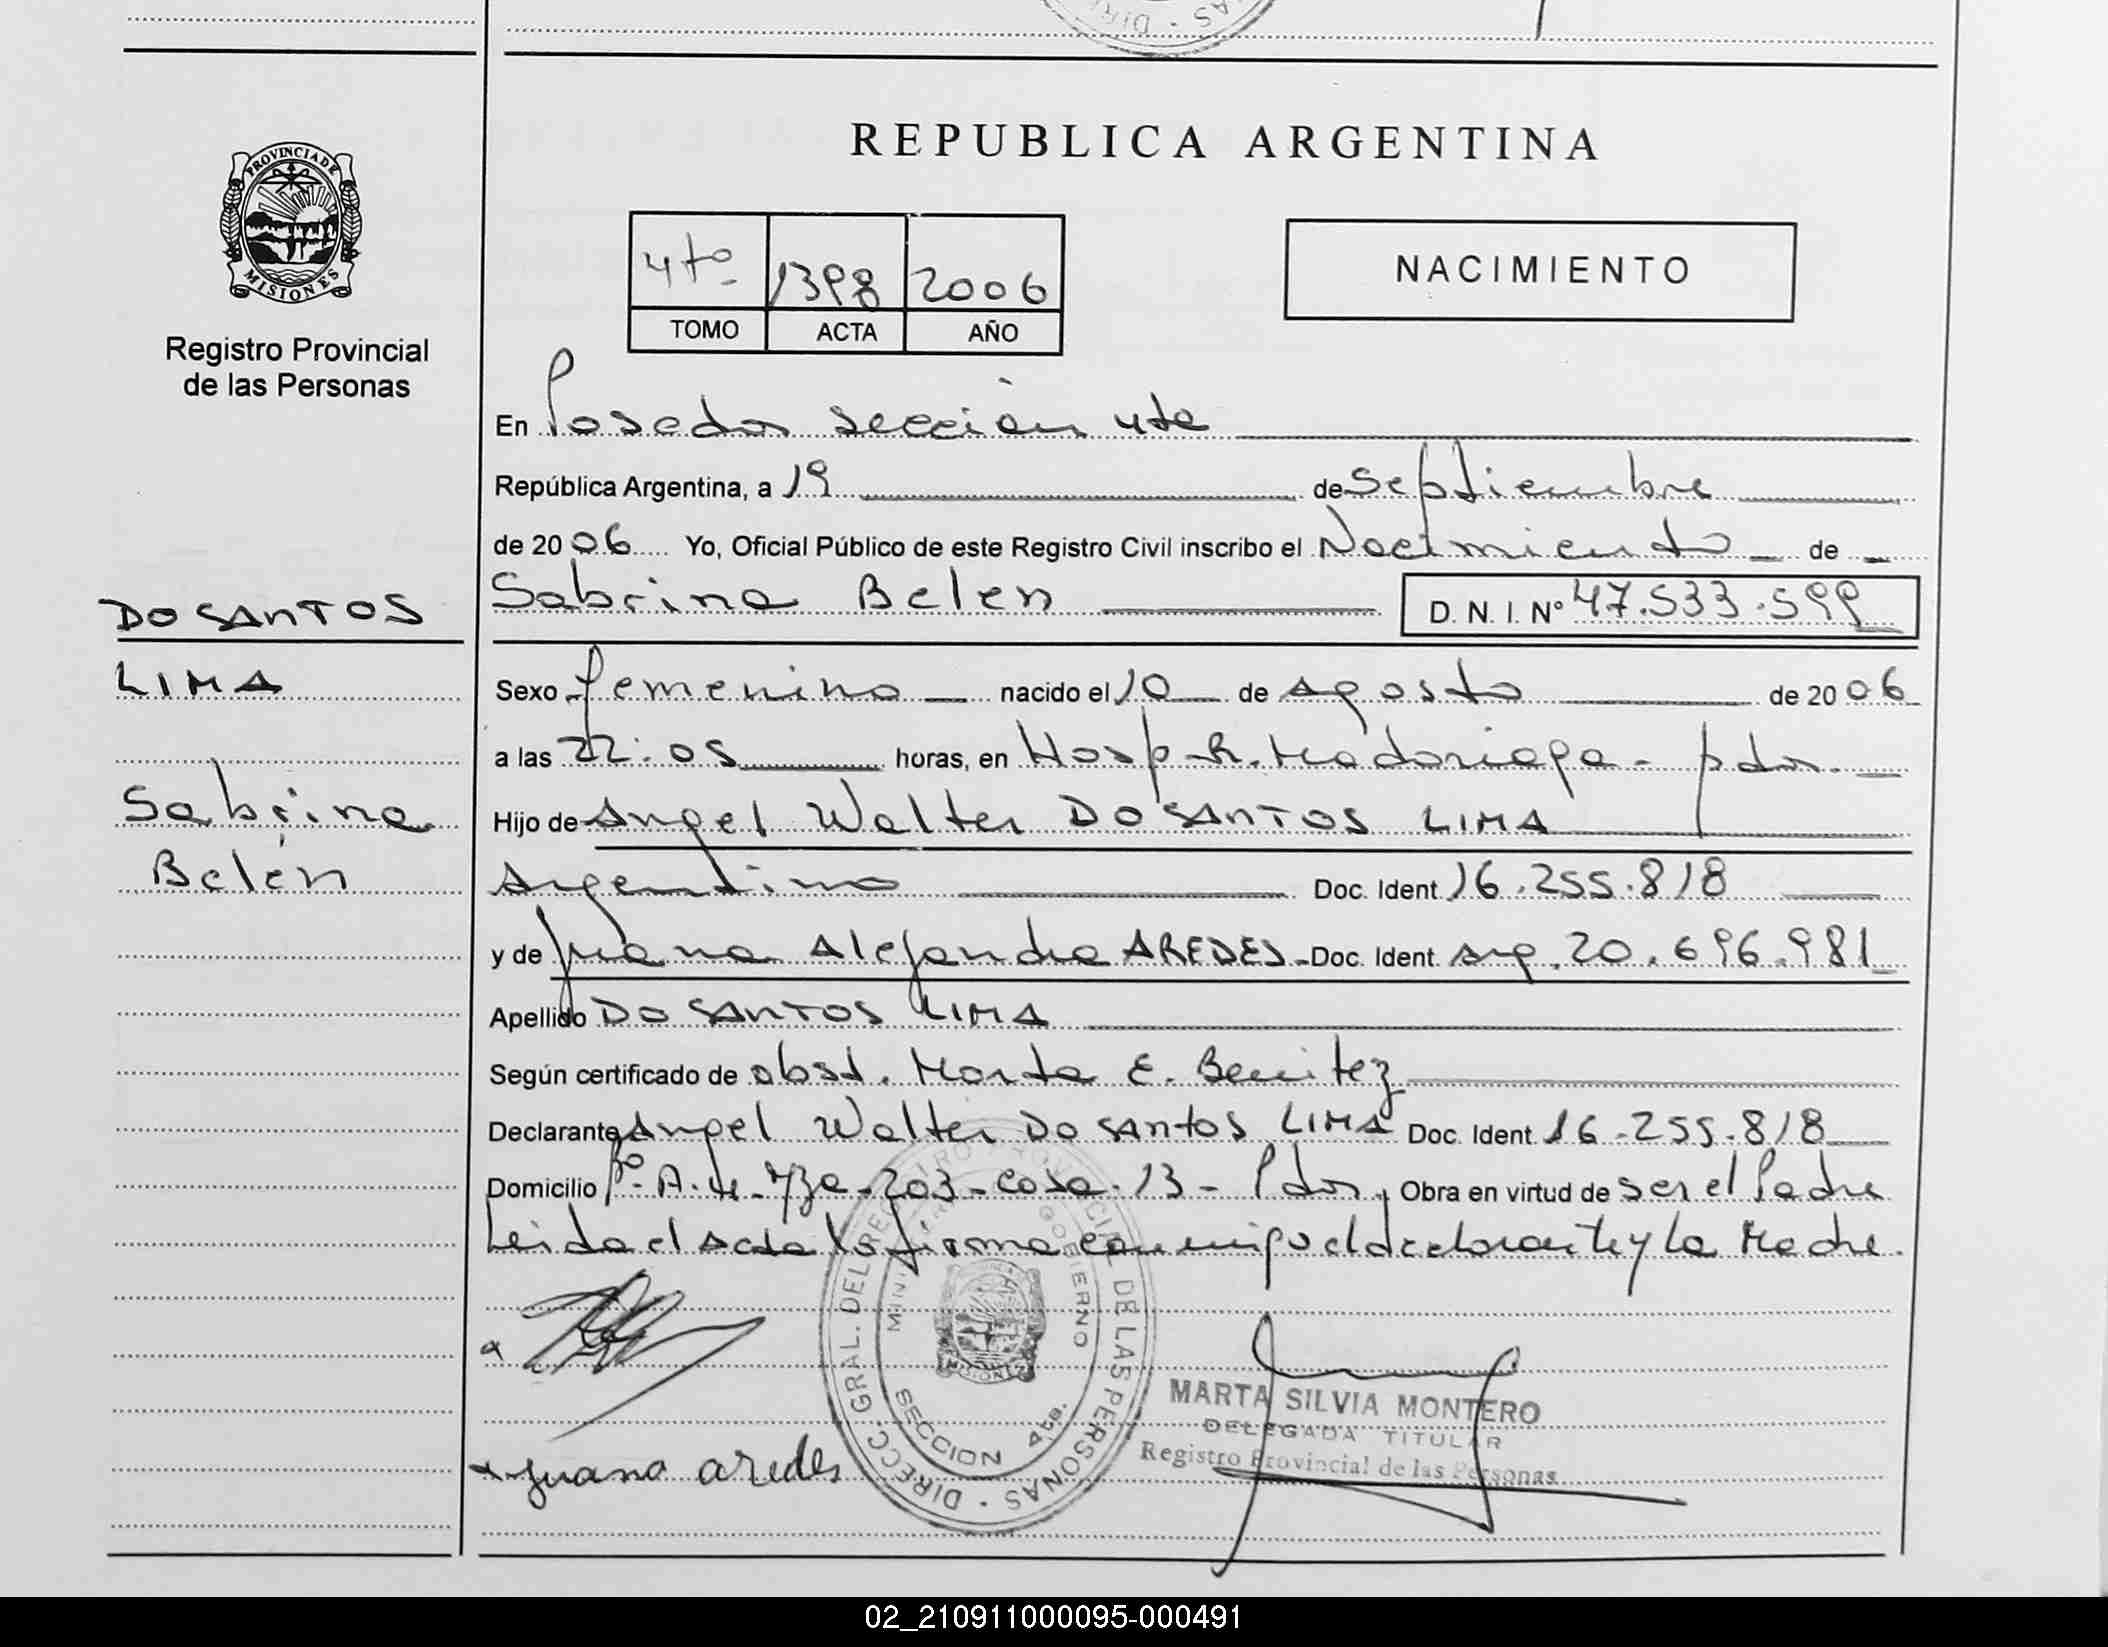 DIRE · NAS
REPUBLICA ARGENTINA
PROVINCIA DE
MISIONES
Registro Provincial
de las Personas
4to 1398 2006
TOMO ACTA AÑO
NACIMIENTO
En Posadas sección 4ta
República Argentina, a 19 de Septiembre
de 2006 Yo, Oficial Público de este Registro Civil inscribo el Nacimiento de
DO SANTOS
Sabrina Belen D. N. I. Nº 47.533.599
LIMA
Sexo femenino nacido el 10 de Agosto de 2006
a las 22:05 horas, en Hosp. R. Madariaga - pdas.
Sabrina
Hijo de Angel Walter DO SANTOS LIMA
Belén
Argentino Doc. Ident. 16.255.818
y de Juana Alejandra AREDES - Doc. Ident. Arg. 20.696.981
Apellido DO SANTOS LIMA
Según certificado de obst. Marta E. Benitez
Declarante Angel Walter DO SANTOS LIMA Doc. Ident. 16.255.818
Domicilio Bº A.4 - Mza - 203 - casa - 13 - Pdas, Obra en virtud de ser el Padre
Leida el acta la firma conmigo el declarante y la Madre.
DIRECC. GRAL. DEL REGISTRO PROVINCIAL DE LAS PERSONAS
GOBIERNO
MISIONES
SECCION 4ta.
MARTA SILVIA MONTERO
DELEGADA TITULAR
Registro Provincial de las Personas
Juana aredes
02_210911000095-000491